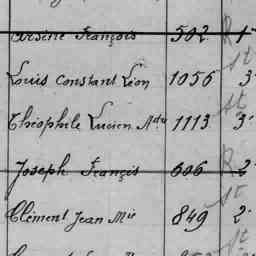 Arsène François 502 R 1
Louis Constant Léon 1056 st 3
Théophile Lucien Adre 1113 st 3
Joseph François 606 R 2
Clément Jean Mie 849 st 2
st